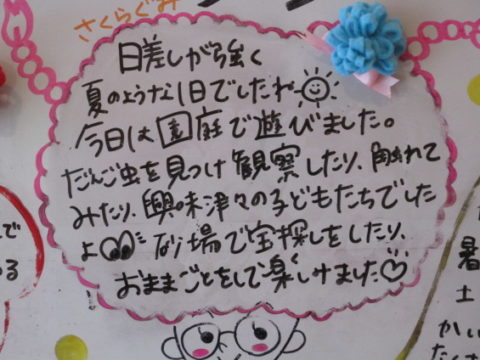 さくらぐみ
日差しが強く
夏のような1日でしたね
今日は園庭で遊びました。
だんご虫を見つけ観察したり、触れて
みたり、興味津々の子どもたちでした
よ 砂場で宝探しをしたり、
おままごとをして楽しみました♡
で
る
暑
土
かい